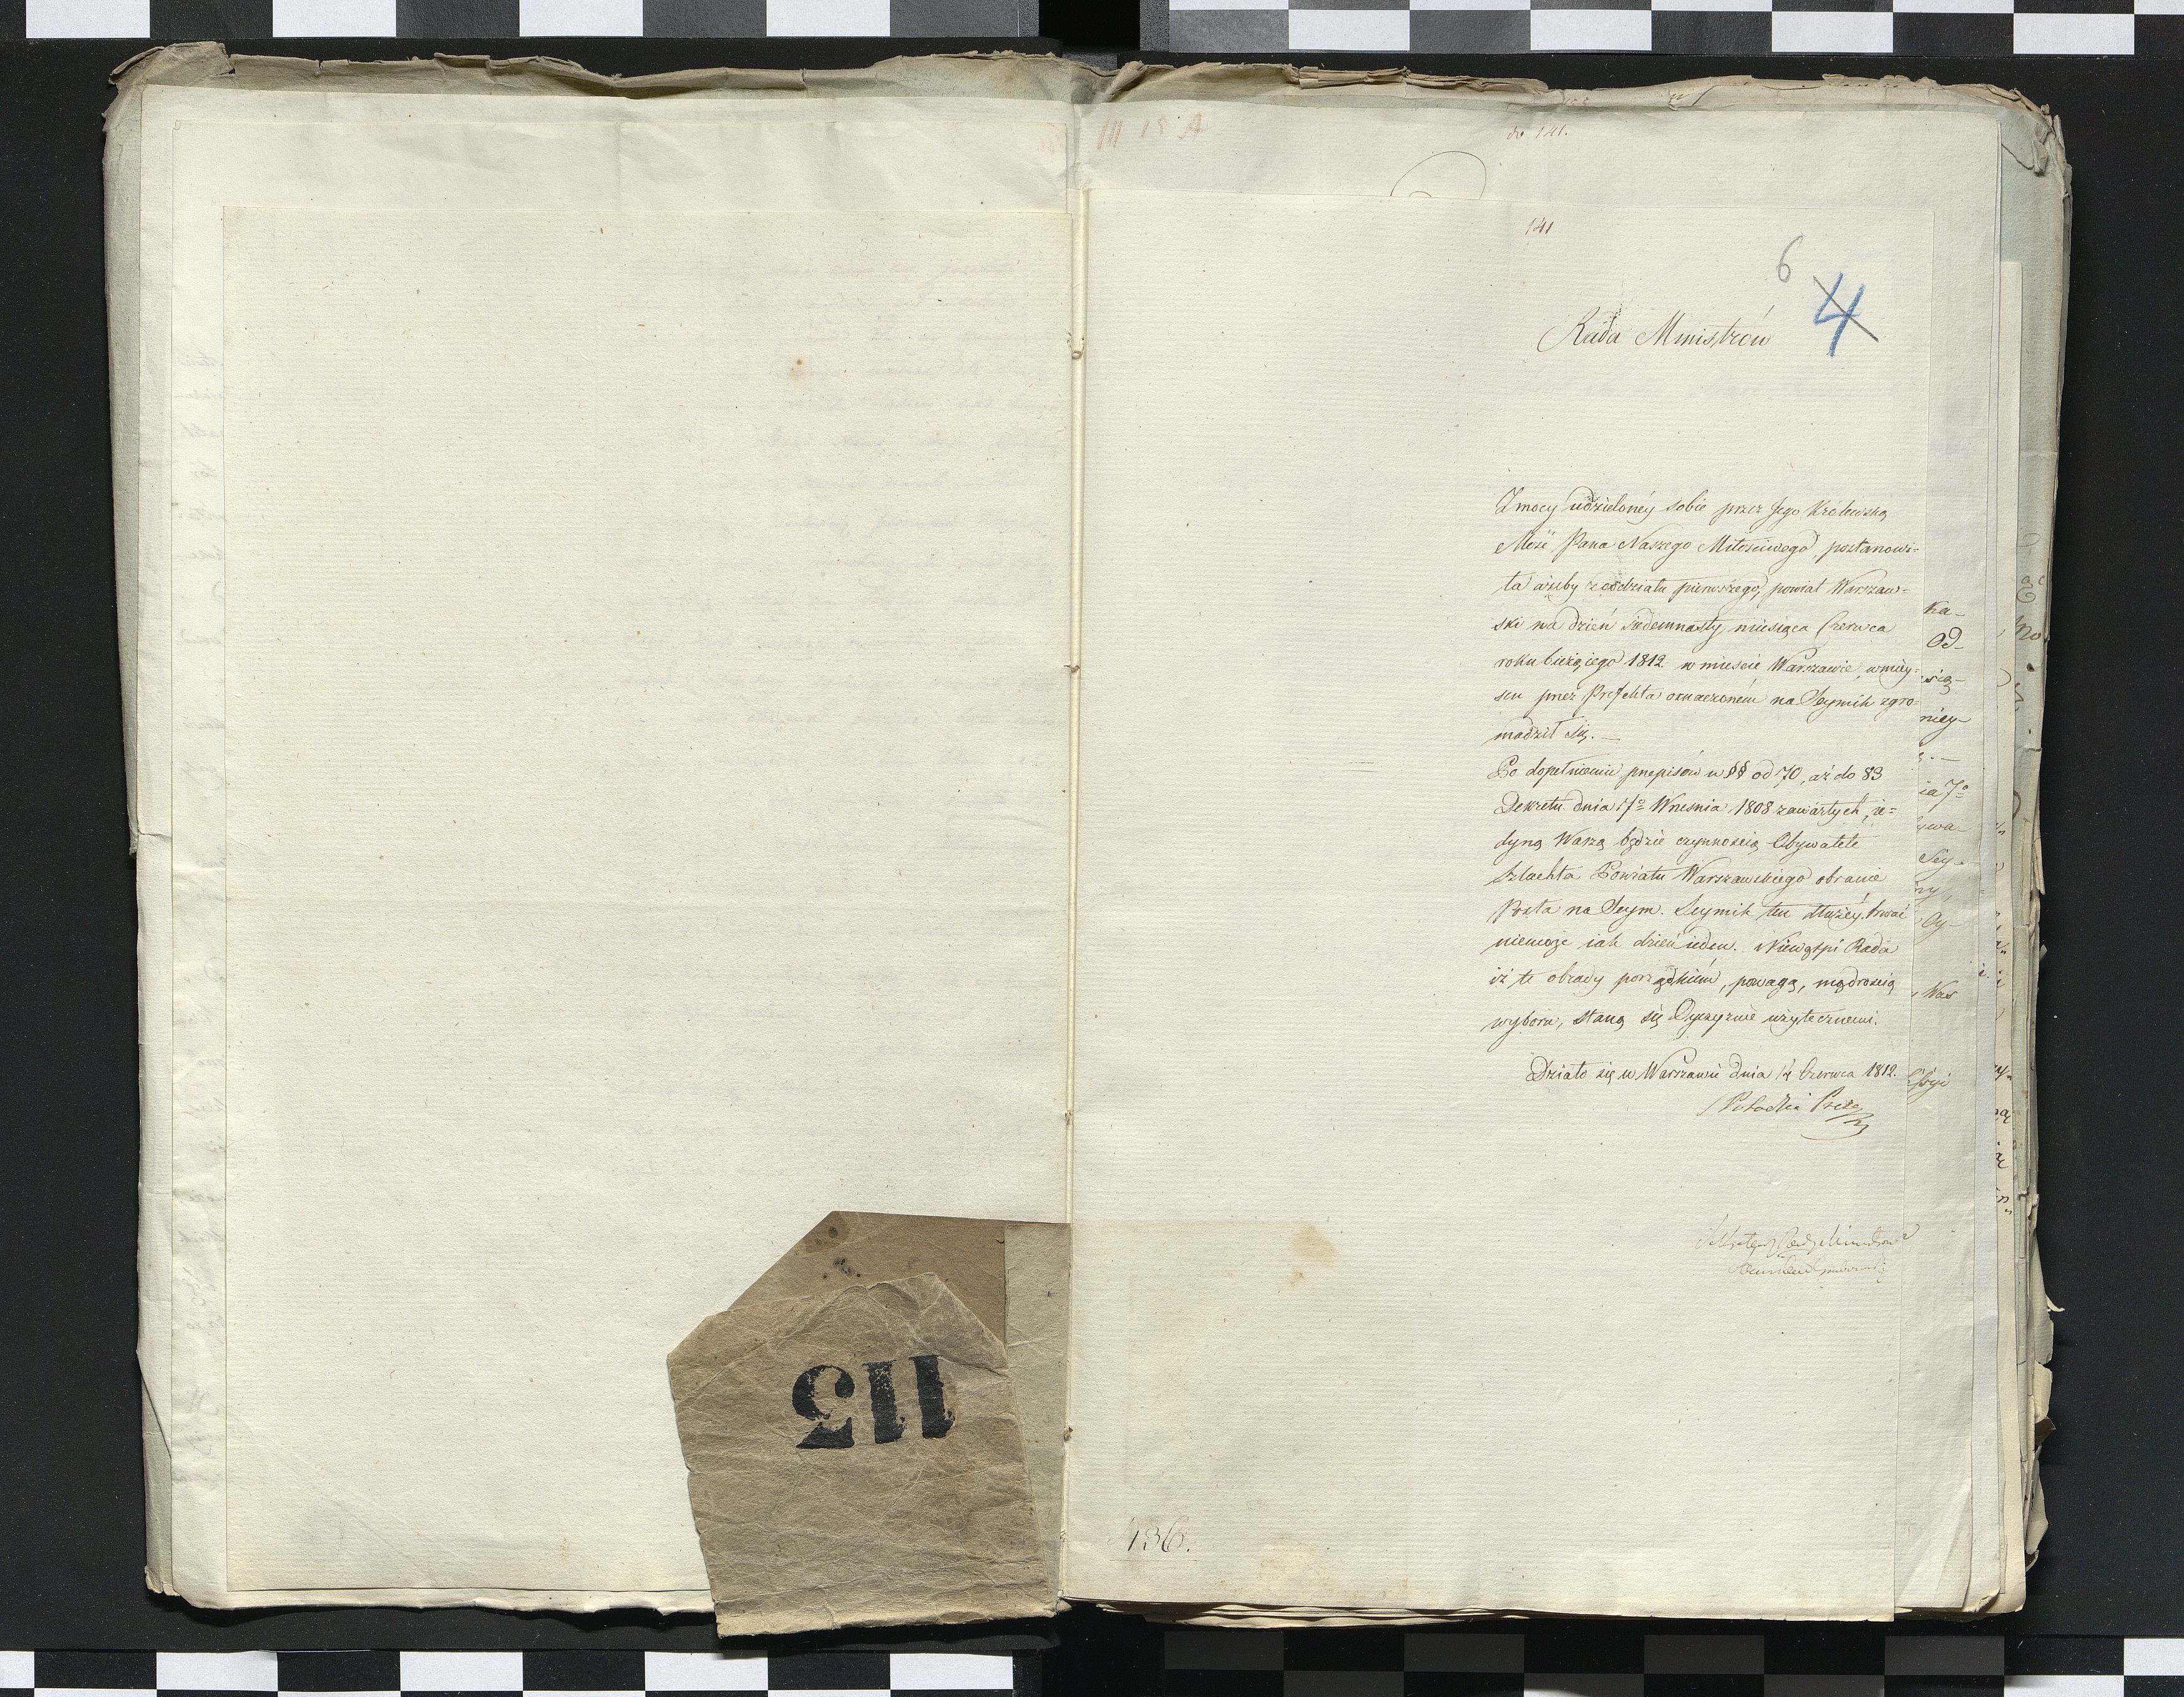 III 15 A
do 141.
141
6
4
Rada Ministrów
Z mocy udzieloney sobie przez Jego Królewską
Mość Pana Naszego Miłościwego, postanowi-
ła ażeby z oddziału pierwszego, powiat Warszaw=
ski na dzień siedemnasty miesiąca Czerwca
roku bieżącego 1812 w mieście Warszawie, w miey=
scu przez Prefekta oznaczoném na Seymik zgro=
madził się. —
Po dopełnieniu przepisów w §§ od 70, aż do 83
Dekretu dnia 7º Wrzesnia 1808 zawartych, ie=
dyną Waszą będzie czynnością Obywatele
Szlachta Powiatu Warszawskiego obranie
Posła na Seym. Seymik ten dłużéy trwać
niemoże iak dzień ieden. Niewątpi Rada
iż te obrady porządkiem, powagą, mądrością
wyboru, staną się Oyczyznie użytecznemi.
Działo się w Warszawie dnia 14 Czerwca 1812.
Sekretarz Rady Ministrów
136.
115
ka-
od-
sią-
niey-
ia 7º
ywa-
Sey-
Oy-
Was